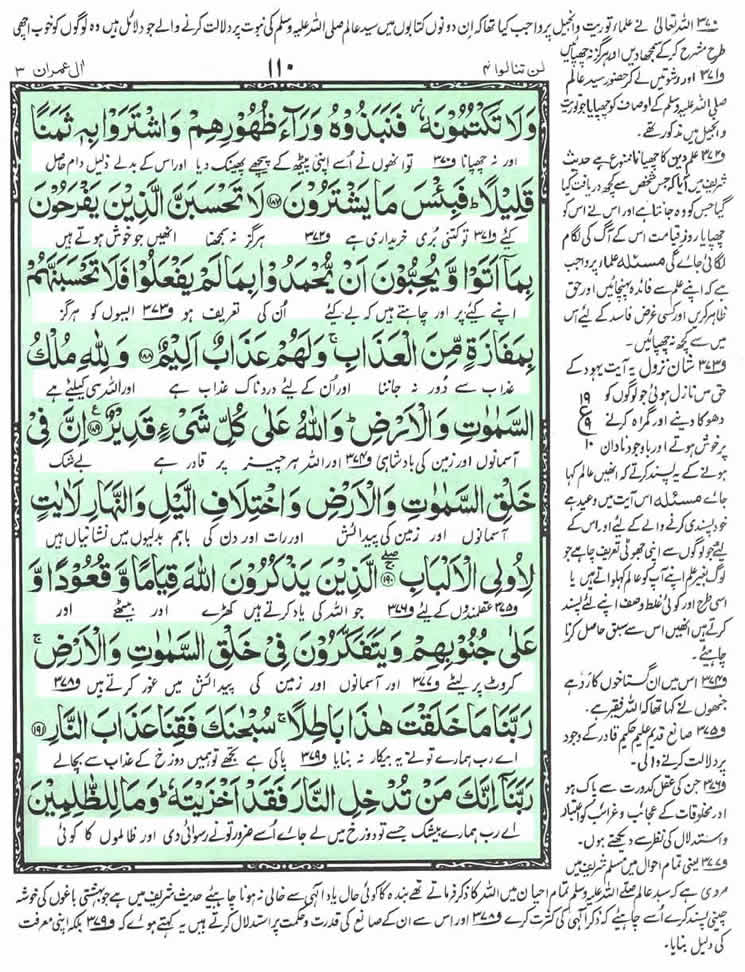 و٣٧٠ اللہ تعالیٰ نے علماء توریت وانجیل پر واجب کیا تھا کہ ان دونوں کتابوں میں سید عالم صلی اللہ علیہ وسلم کی نبوت پر دلالت کرنے والے جو دلائل ہیں وہ لوگوں کو خوب اچھی
طرح مشرح کرکے سمجھادیں اور ہرگز نہ چھپائیں
و٣٧١ اور رشوتیں لے کر حضور سید عالم
صلی اللہ علیہ وسلم کے اوصاف کو چھپایا جو توریت
وانجیل میں مذکور تھے۔
و٣٧٢ علم دین کا چھپانا ممنوع ہے حدیث
شریف میں آیا کہ جس شخص سے کچھ دریافت کیا
گیا جس کو وہ جانتا ہے اور اس نے اس کو
چھپایا روز قیامت اس کے آگ کی لگام
لگائی جائے گی مسئلہ علما پر واجب
ہے کہ اپنے علم سے فائدہ پہنچائیں اور حق
ظاہر کریں اور کسی غرض فاسد کے لئے اس
میں سے کچھ نہ چھپائیں۔
و٣٧٣ شان نزول یہ آیت یہود کے
حق میں نازل ہوئی جو لوگوں کو
دھوکا دینے اور گمراہ کرنے
پر خوش ہوتے اور باوجود نادان
ہونے کے یہ پسند کرتے کہ انھیں عالم کہا
جائے مسئلہ اس آیت میں وعید ہے
خود پسندی کرنے والے کے لئے اور اس کے
لئے جو لوگوں سے اپنی جھوٹی تعریف چاہے جو
لوگ بغیر علم اپنے آپ کو عالم کہلواتے ہیں یا
اسی طرح اور کوئی غلط وصف اپنے لئے پسند
کرتے ہیں انھیں اس سے سبق حاصل کرنا
چاہیے۔
و٣٧٤ اس میں ان گستاخوں کا رد ہے
جنھوں نے کہا تھا کہ اللہ فقیر ہے۔
و٣٧٥ صانع قدیم علیم حکیم قادر کے وجود
پر دلالت کرنے والی۔
و٣٧٦ جن کی عقل کدورت سے پاک ہو
اور مخلوقات کے عجائب وغرائب کو اعتبار
واستدلال کی نظر سے دیکھتے ہوں۔
و٣٧٧ یعنی تمام احوال میں مسلم شریف میں
لن تنالوا ٤
١١٠
ال عمران ٣
وَلَا تَكْتُمُونَهٗ فَنَبَذُوْهُ وَرَآءَ ظُهُوْرِهِمْ وَاشْتَرَوْا بِهٖ ثَمَنًا
اور نہ چھپانا و٣٧٠ تو انھوں نے اُسے اپنی پیٹھ کے پیچھے پھینک دیا اور اس کے بدلے ذلیل دام حاصل
قَلِيْلًا ؕ فَبِئْسَ مَا يَشْتَرُوْنَ ﴿١٨٧﴾ لَا تَحْسَبَنَّ الَّذِيْنَ يَفْرَحُوْنَ
کئے و٣٧١ تو کتنی بُری خریداری ہے و٣٧٢ ہرگز نہ سمجھنا انھیں جو خوش ہوتے ہیں
بِمَاۤ اَتَوْا وَّيُحِبُّوْنَ اَنْ يُّحْمَدُوْا بِمَا لَمْ يَفْعَلُوْا فَلَا تَحْسَبَنَّهُمْ
اپنے کیئے پر اور چاہتے ہیں کہ بے کیئے اُن کی تعریف ہو و٣٧٣ ایسوں کو ہرگز
بِمَفَازَةٍ مِّنَ الْعَذَابِ ۚ وَلَهُمْ عَذَابٌ اَلِيْمٌ ﴿١٨٨﴾ وَلِلّٰهِ مُلْكُ
عذاب سے دُور نہ جاننا اور اُن کے لئے دردناک عذاب ہے اور اللہ ہی کیلئے ہے
السَّمٰوٰتِ وَالْاَرْضِ ؕ وَاللّٰهُ عَلٰى كُلِّ شَيْءٍ قَدِيْرٌ ﴿١٨٩﴾ اِنَّ فِيْ
آسمانوں اور زمین کی بادشاہی و٣٧٤ اور اللہ ہر چیز پر قادر ہے بے شک
خَلْقِ السَّمٰوٰتِ وَالْاَرْضِ وَاخْتِلَافِ الَّيْلِ وَالنَّهَارِ لَاٰيٰتٍ
آسمانوں اور زمین کی پیدائش اور رات اور دن کی باہم بدلیوں میں نشانیاں ہیں
لِّاُولِي الْاَلْبَابِ ﴿١٩٠﴾ الَّذِيْنَ يَذْكُرُوْنَ اللّٰهَ قِيَامًا وَّقُعُوْدًا وَّ
و٣٧٥ عقلمندوں کے لئے و٣٧٦ جو اللہ کی یاد کرتے ہیں کھڑے اور بیٹھے اور
عَلٰى جُنُوْبِهِمْ وَيَتَفَكَّرُوْنَ فِيْ خَلْقِ السَّمٰوٰتِ وَالْاَرْضِ ۚ
کروٹ پر لیٹے و٣٧٧ اور آسمانوں اور زمین کی پیدائش میں غور کرتے ہیں و٣٧٨
رَبَّنَا مَا خَلَقْتَ هٰذَا بَاطِلًا ۚ سُبْحٰنَكَ فَقِنَا عَذَابَ النَّارِ ﴿١٩١﴾
اے رب ہمارے تو نے یہ بیکار نہ بنایا و٣٧٩ پاکی ہے تجھے تو ہمیں دوزخ کے عذاب سے بچالے
رَبَّنَاۤ اِنَّكَ مَنْ تُدْخِلِ النَّارَ فَقَدْ اَخْزَيْتَهٗ ؕ وَمَا لِلظّٰلِمِيْنَ
اے رب ہمارے بیشک جسے تو دوزخ میں لے جائے اُسے ضرور تو نے رسوائی دی اور ظالموں کا کوئی
١٩
ع
٩
١٠
مروی ہے کہ سید عالم صلے اللہ علیہ وسلم تمام احیان میں اللہ کا ذکر فرماتے تھے بندہ کا کوئی حال یاد الٰہی سے خالی نہ ہونا چاہیئے حدیث شریف میں ہے جو بہشتی باغوں کی خوشہ
چینی پسند کرے اُسے چاہیئے کہ ذکر الٰہی کی کثرت کرے و٣٧٨ اور اس سے ان کے صانع کی قدرت وحکمت پر استدلال کرتے ہیں یہ کہتے ہوئے کہ و٣٧٩ بلکہ اپنی معرفت
کی دلیل بنایا۔